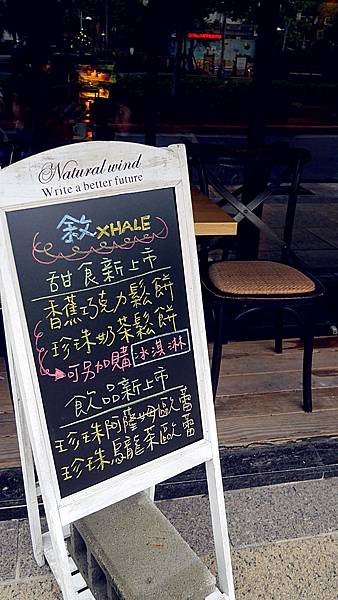 Natural wind
Write a better future
敘 XHALE
甜食新上市
香蕉巧克力鬆餅
珍珠奶茶鬆餅
可另加購 冰淇淋
飲品新上市
珍珠阿薩姆歐蕾
珍珠烏龍茶歐蕾